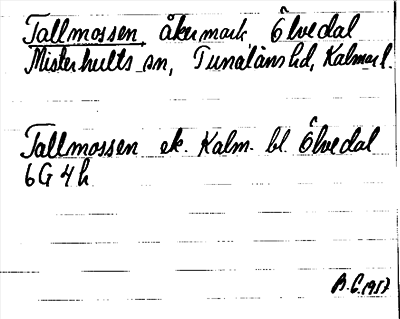 Tallmossen, åkermark Ölvedal
Misterhults sn, Tunaläns hd, Kalmar l.
Tallmossen ek. Kalm. bl. Ölvedal
6G 4h
A.C. 1957